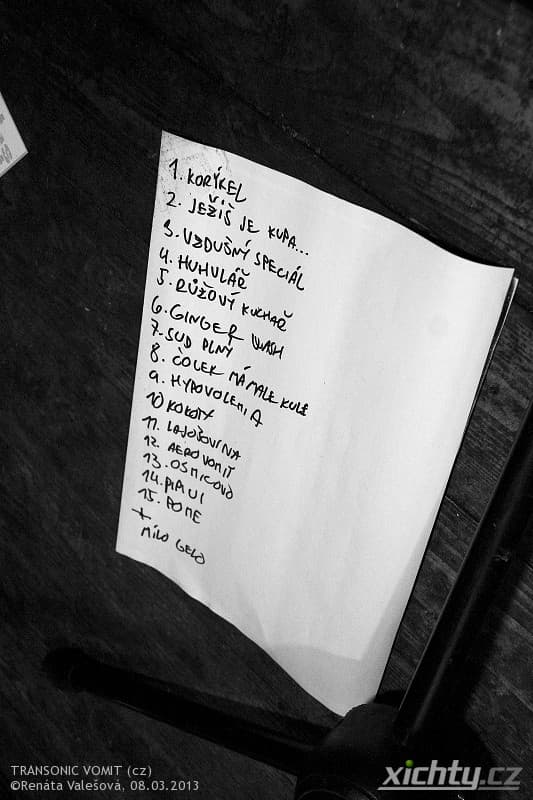 1. KORÝKEL
2. JEŽIŠ JE KUPA...
3. VZDUŠNÝ SPECIÁL
4. HUHULÁŘ
5. RŮŽOVÝ KUCHAŘ
6. GINGER WASH
7. SUD PLNÝ
8. ČOLEK MÁ MALE KULE
9. HYPOVOLEMIA
10 KOKOTY
11. LAJOŠOVINA
12. AEROVOMIT
13. OSMICOVO
14. PIAUI
15. POME
+
MILO GELO
TRANSONIC VOMIT (cz)
©Renáta Valešová, 08.03.2013
xichty.cz